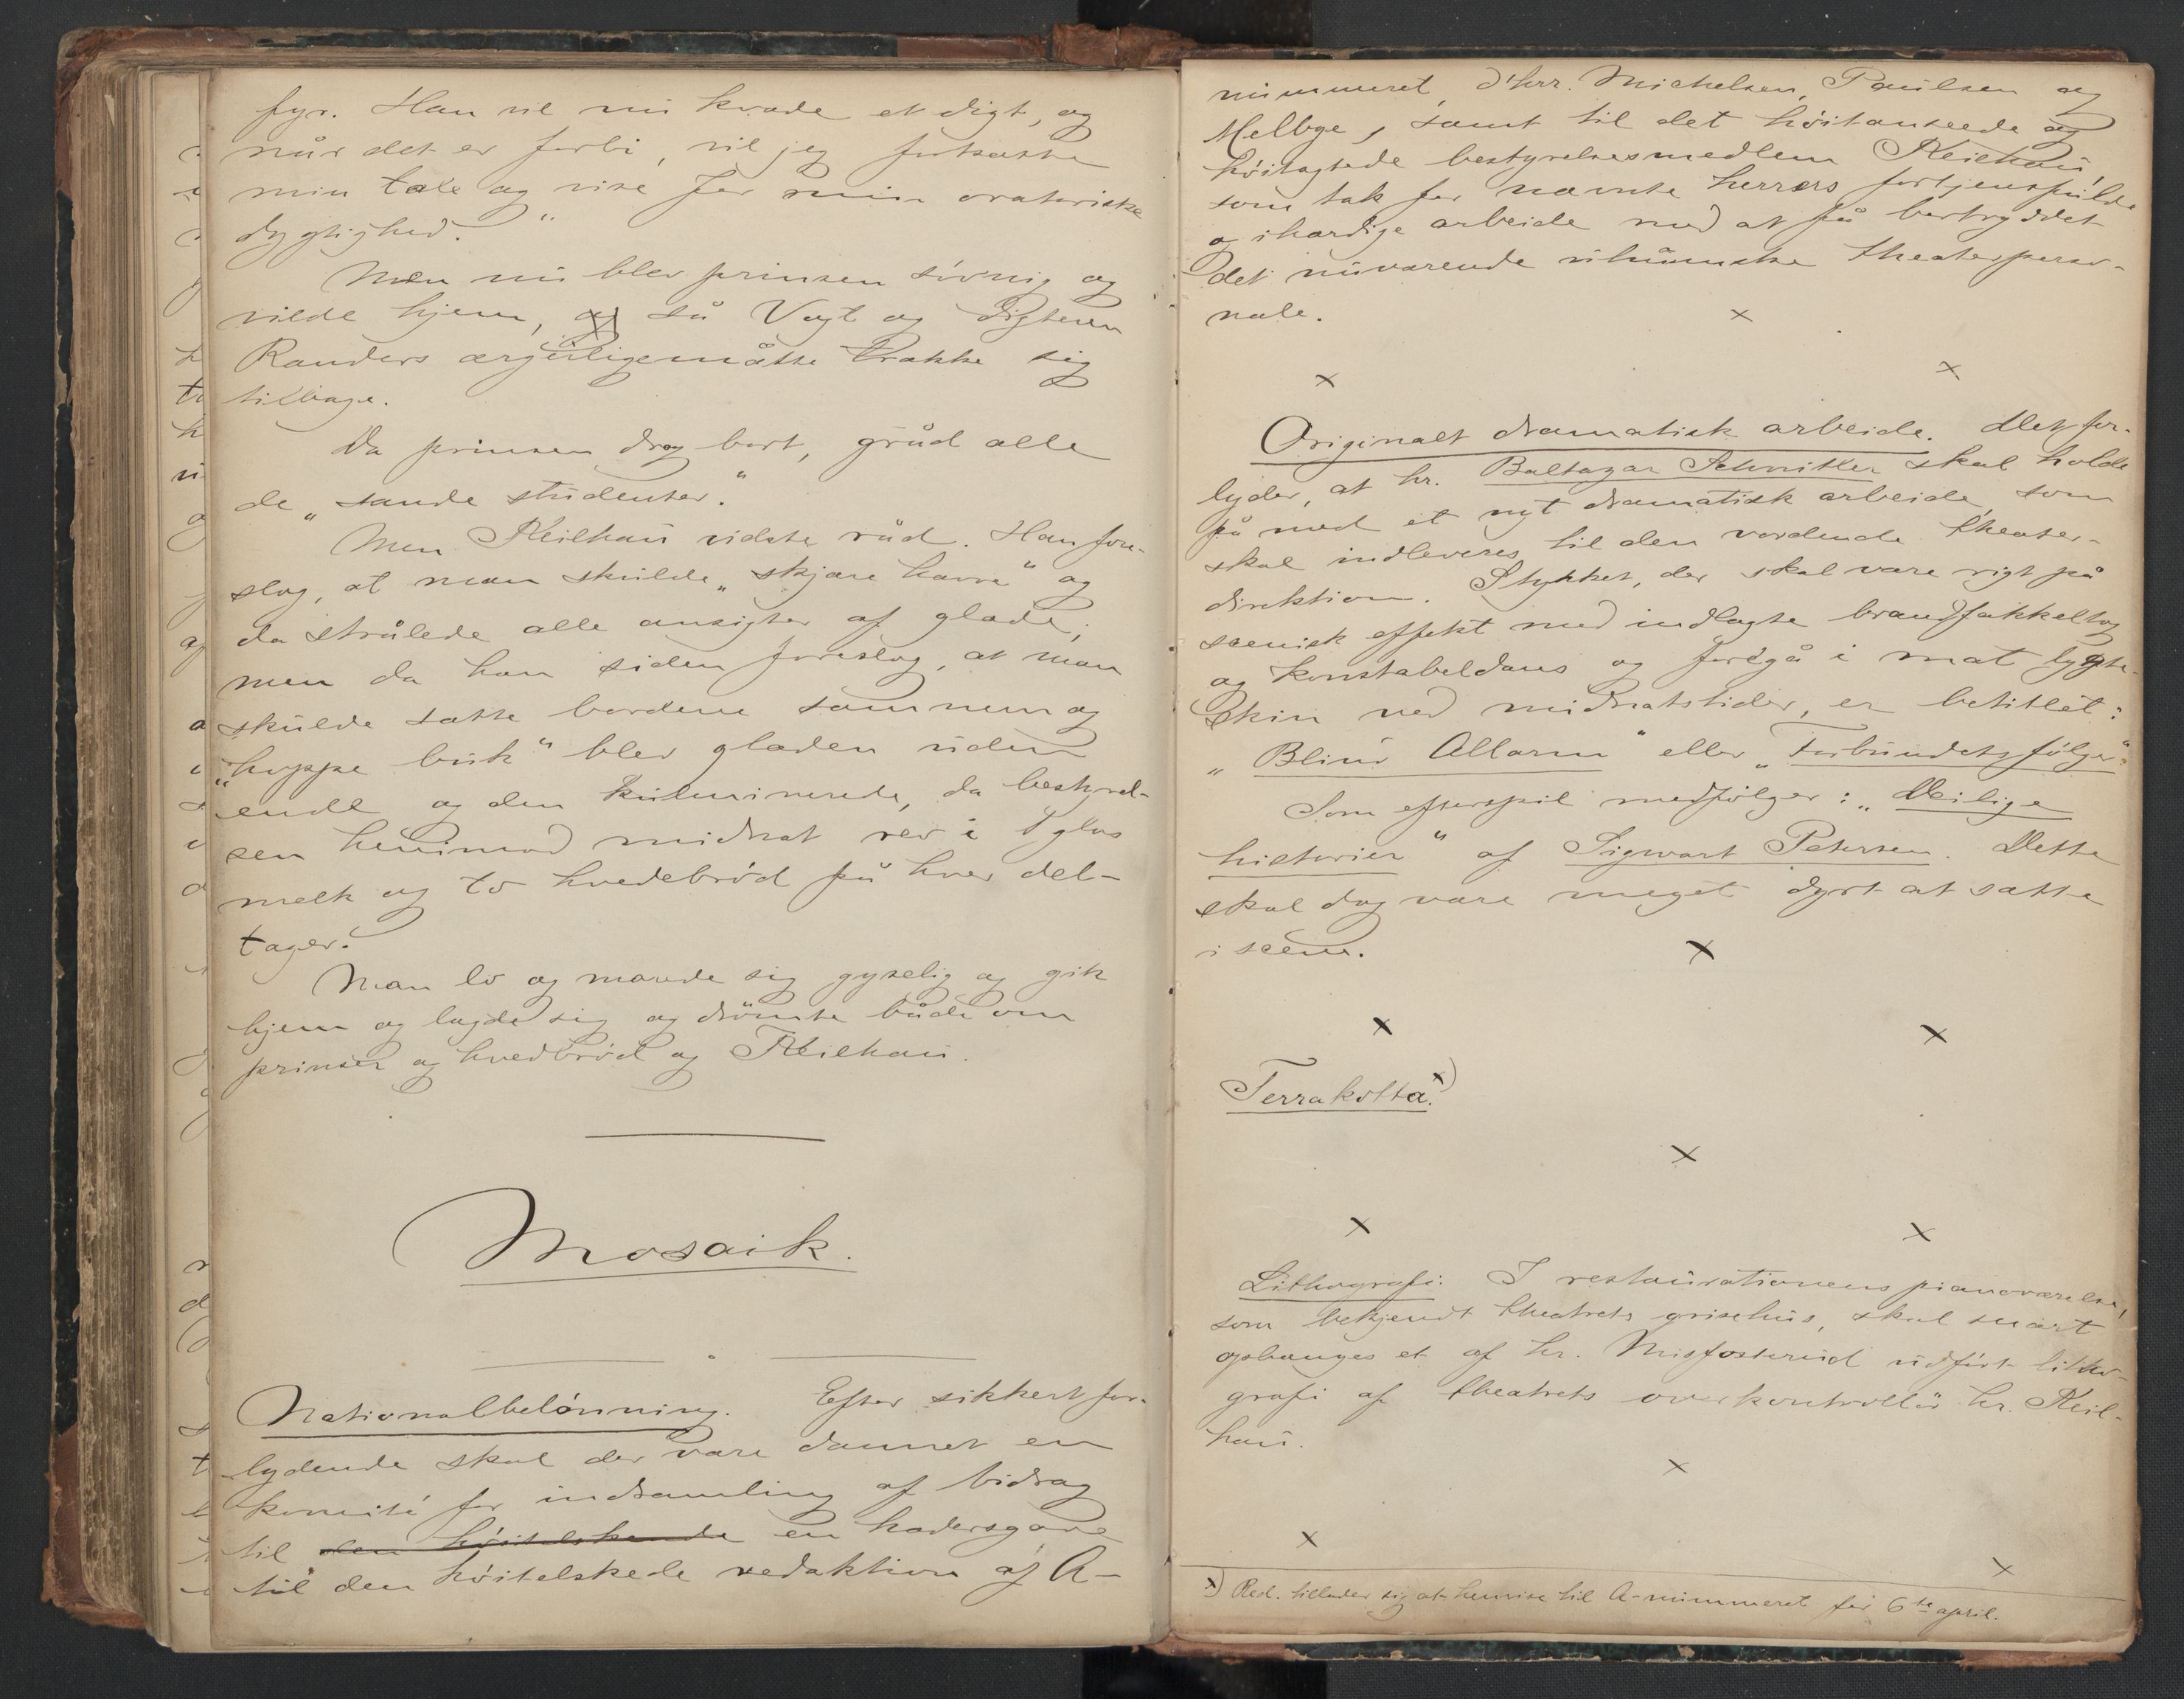 fyr. Han vil nu kvæde et digt, og
når det er forbi, vil jeg fortsætte
min tale og vise Jer min oratoriske
dygtighed."
Men nu blev prinsen sövnig og
vilde hjem, så Vogt og digteren
Randers ærgerlige måtte trække sig
tilbage.
Da prinsen drog bort, gråd alle
de „sande studenter."
Men Keilhau vidste råd. Han fore-
slog, at man skulde „skjære havre" og
da strålede alle ansigter af glæde;
men da han siden foreslog, at man
skulde sætte bordene sammen og
„hoppe buk" blev glæden uden
ende og den kulminerede, da bestyrel-
sen henimod midnat rev i 1 glas
melk og to hvedebröd på hver del-
tager.
Man lo og morede sig gyselig og gik
hjem og lagde sig og drömte både om
prinser og hvedbröd og Keilhau.
Mosaik.
Nationalbelönning. Efter sikkert for-
lydende skal der være dannet en
komité for indsamling af bidrag
til den höitelskende en hædersgave
til den höitelskede redaktion af A-
nummeret, d'hrr. Michelsen, Paulsen og
Melbye, samt til det höitanseede og
höitagtede bestyrelsesmedlem Keilhau,
som tak for nævnte herrers fortjenstfulde
og ihærdige arbeide med at få bortryddet
det nuværende uhumske theaterperso-
nale.
x
x x
Originalt dramatisk arbeide. Det for-
lyder, at hr. Baltazar Schnitler skal holde
på med et nyt dramatisk arbeide, som
skal indleveres til den vordende theater-
direktion. Stykket, der skal være rigt på
scenisk effekt med indlagte brandfakkeltog
og konstabeldans og foregå i mat lygte-
skin ved midnatstider, er betitlet:
„Blind Allarm" eller „Forbundets fölger".
Som efterspil medfölger: „Deilige
historier" af Sigwart Petersen. Dette
skal dog være meget dyrt at sætte
i scene.
x
x x
Terrakotta.x)
x
x x
Lithografi. I restaurationens pianoværelse,
som bekjendt theatrets grisehus, skal snart
ophænges et af hr. Misfosterud udfört litho-
grafi af theatrets overkontrollör hr. Keil-
hau.
x
x x
x) Red. tillader sig at henvise til A-nummeret for 6te april.